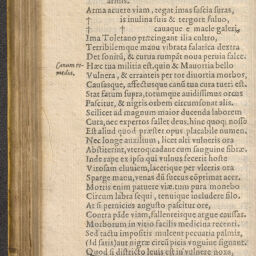 armis.
Arma acuere viam, tegat imas fascia suras,
† is inulina suis & tergore fuluo,
† † cauaque e male galeri,
Ima Toletano præcingant ilia cultro,
Terribilemque manu vibrata falarica dextra
Det sonitũ, & curta rumpat noua peruia falce.
Hæc tua militia est, quin & Mauortia bello
Canum remedia.
Vulnera, & errantes per tot diuortia morbos,
Causasque, affectusque canũ tua cura tueri est.
Stat fatum supra, totumque auidissimus occus
Pascitur, & nigris orbem circumsonat alis.
Scilicet ad magnum maior ducenda laborem
Cura, nec expertos fallet deus, hinc quoq; nosso
Est aliud quod præstet opus placabile numen.
Nec longe auxilium, licet alti vulneris ora
Abstiterint, vteroq; cadant cum sanguine fibræ.
Inde rape ex ipso qui vulnus fecerit hoste
Vitosam eluuiem, lacerique per vlceris ora
Sparge manu, venas dũ succus cõprimat acer.
Mortis enim patuere viæ. tum pura monebo
Circum labra sequi, tenuique includere filo.
At si pernicies angusto pascitur ore,
Contra pãde viam, fallentesque argue caussas.
Morborum in vitio facilis medicina recenti.
Sed tacta impositis mulcent pecuaria palmis,
(Id satis) aut nigræ circũ picis voguine signant.
Quod si districto leuis est in vulnere noxa,